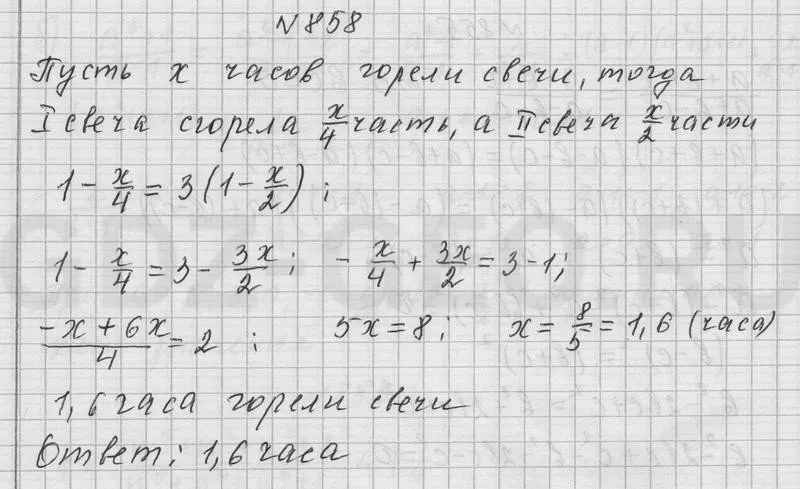 № 858
Пусть x часов горели свечи, тогда
I свеча сгорела x/4 часть, а II свеча x/2 части
1 - x/4 = 3(1 - x/2);
1 - x/4 = 3 - 3x/2; - x/4 + 3x/2 = 3 - 1;
(-x + 6x)/4 = 2; 5x = 8; x = 8/5 = 1,6 (часа)
1,6 часа горели свечи
Ответ: 1,6 часа